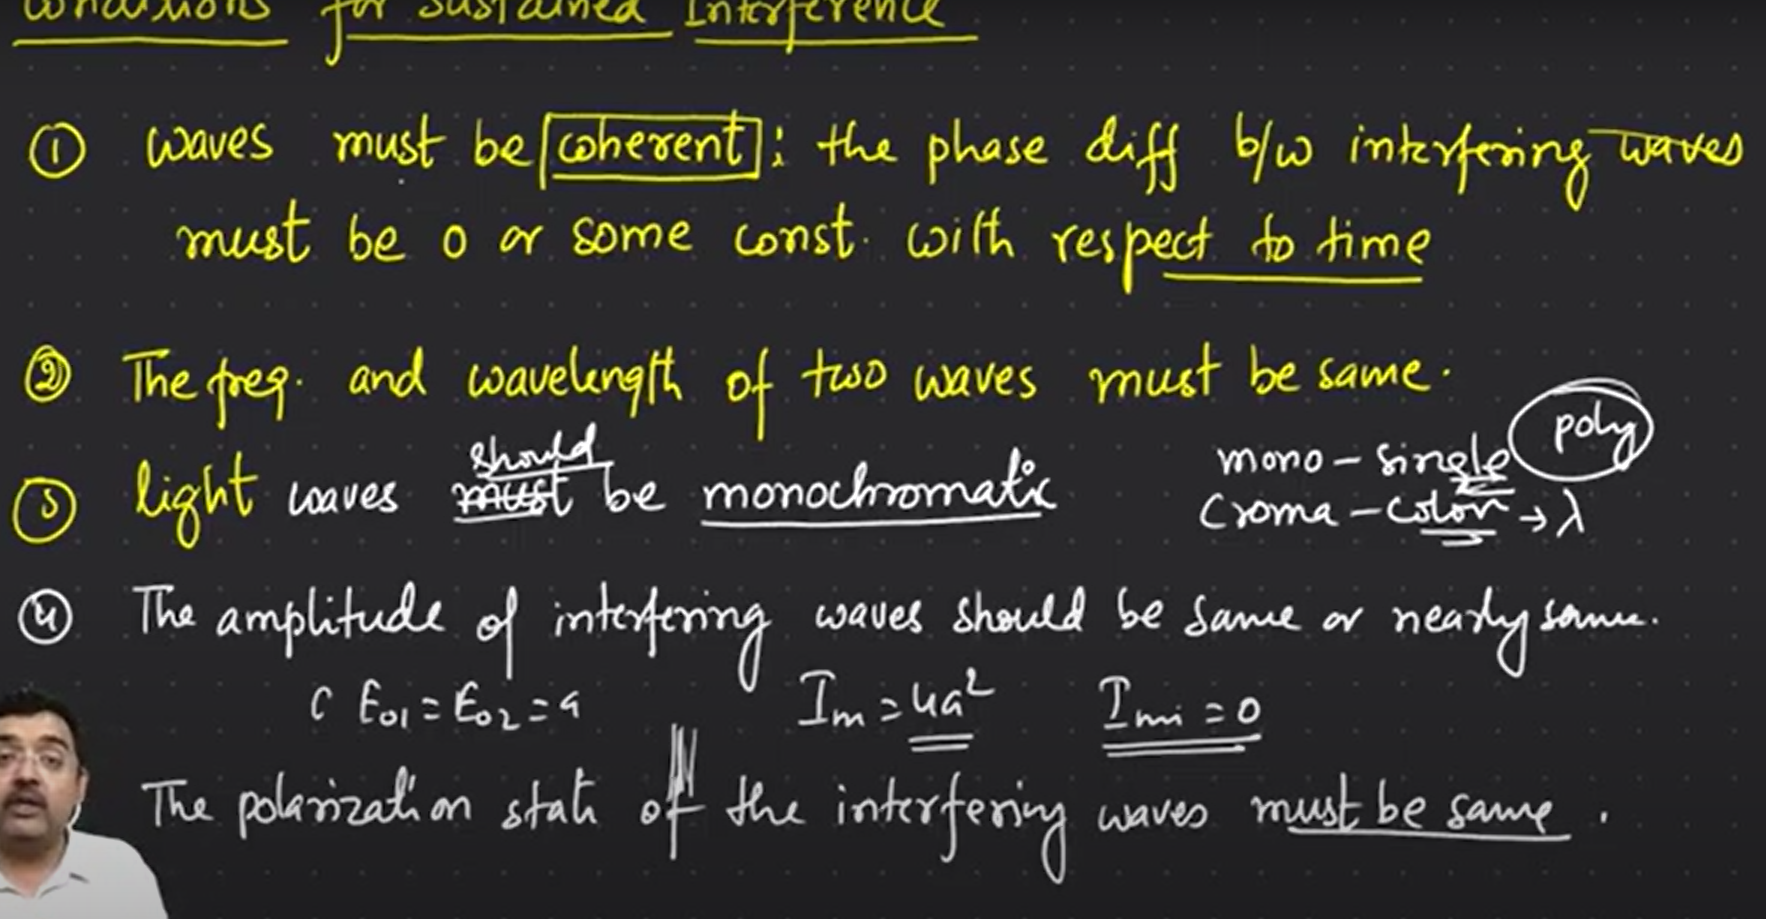 Conditions for Sustained Interference
① waves must be coherent : the phase diff b/w interfering waves
must be 0 or some const. with respect to time
② The freq. and wavelength of two waves must be same.
should
poly
③ light waves must be monochromatic
mono - single
Croma - color → λ
④ The amplitude of interfering waves should be same or nearly same.
( E01 = E02 = a Im = 4a² Imi = 0
The polarization state of the interfering waves must be same .